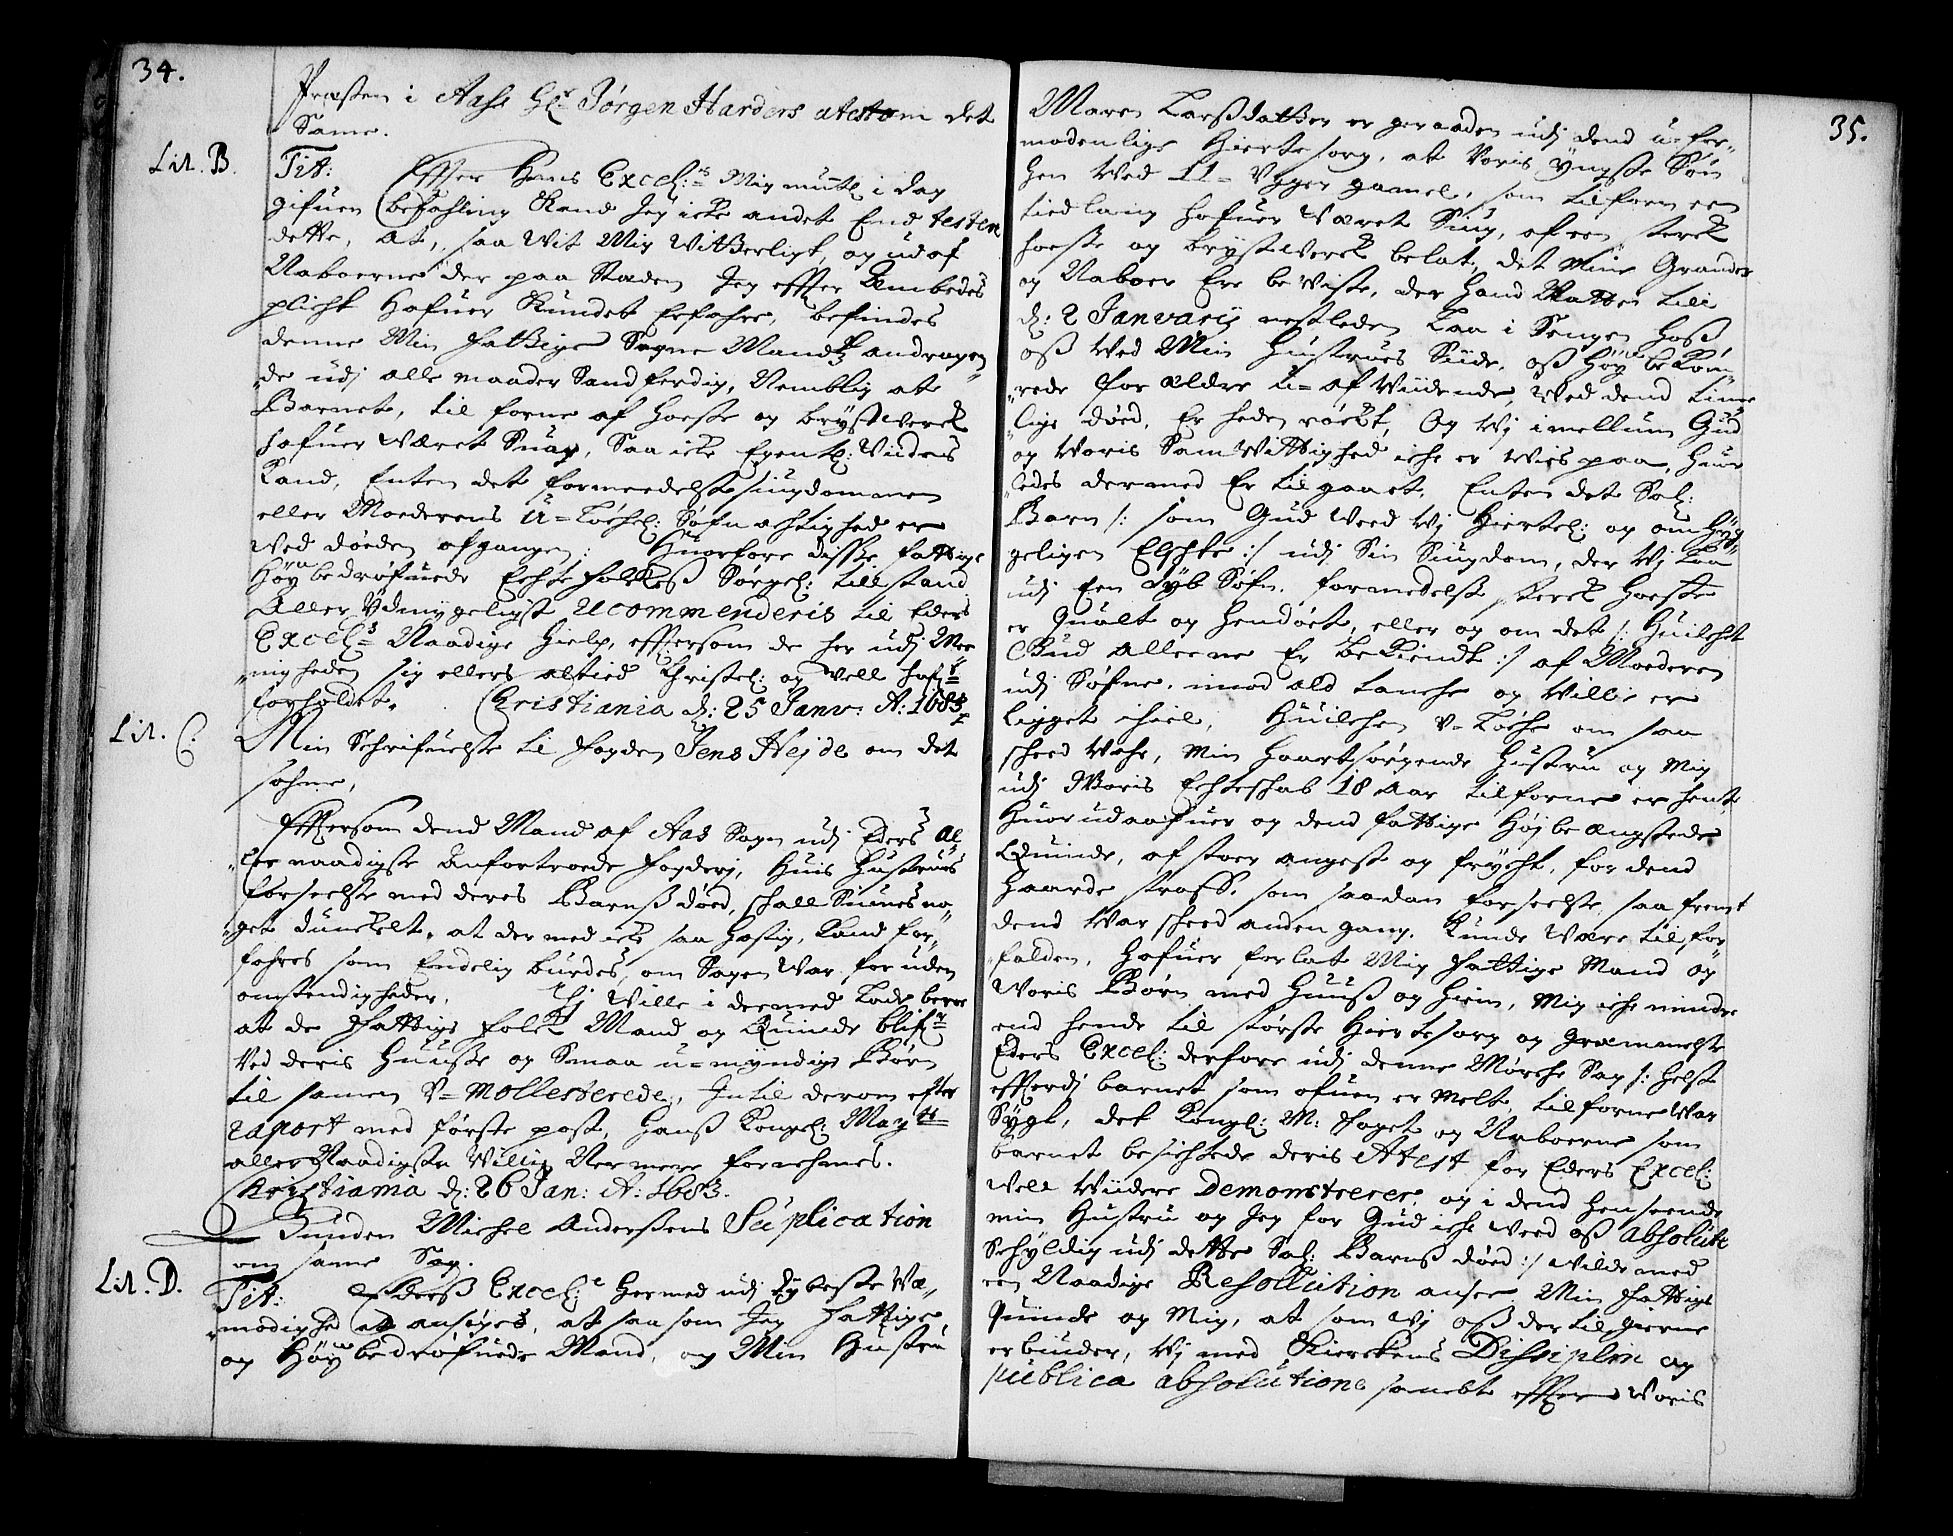 34.
Præsten i Aass Hr Jørgen Harders atest om det
Same.
Lit. B.
Tit: Effter Hans Excel:s Mig muntl i dag
gifuen befahling Kand Jeg icke andet End testere
dette, at, saa vit Mig vitterligt, og ud af
Naboerne der paa Staden Jeg effter Embedes
plicht Hafuer Kundet Erfahre, befindes
denne Min fattige Sogne Mands andragen¬
de udj alle maader Sandferdig, Nemblig at
Barnet, til forne af Hoeste og brystverck
hafuer været Suag, Saa icke Egentl: viides
Kand, Enten det formeedelst siugdommen
eller Moederens U=Løchel: Søfnachtighed er
ved døden afgangen: Huorfore disse fattige
Høybedrøfuede Echte folckes Sorgel: tillstand
Aller Ydmygeligst recommenderis til Eders
Excel:s Naadige Hielp, efftersom de her udj Me¬
nigheden sig ellers altid Christel: og vell hafr
forholdet. Christiania d: 25 Janv: A: 1683
Lit. C.
Min Schrifuelse til fogden Jens Hejde om det
sahme,
Efftersom dend Mand af Aas Sogn udj Eders al¬
ler naadigste Anfortroede fogderj, Huis Hustrues
forseelse med deres Barns død, schall Siunes no¬
get dunckelt, at der med icke saa hastig, Kand for¬
fahres som Endelig burdes, om Sagen var foruden
omstendigheder, Hj ville i dermed Lade bero
at de fattige folck Mand og Quinde blifr
ved deris Huusse og Smaa u=myndige Børn
til samen U=mollesterede, Intil derom efter
raport med første post, Hans Kongel: Maytt
aller Naadigste Villie Nermere fornehmes.
Christiania d: 26 Jan: A: 1683.
Bunden Michel Anderssens Suplication
om samme Sag.
Lit. D.
Tit: Eders Excel:e Hermed udj dybeste Yd¬
modighed at ansøges, at saa som Jeg fattige,
og Høybedrøfuede Mand, og Min Hustru
35.
Maren Larsdatter er geraaden udj dend uefor¬
modenlige Hiertesorg, at Voris yngste Søn
hen ved 11= Uger gamel, som tilforn een
tied lang hafuer været Siug, af een sterck
hoeste og brystverck belat, det Mine Grander
og Naboer Ere beviste, der hand Natten till
d: 2 Janvarij nestleden Laa i Sengen hoss
oss ved Min Hustrues Siide, oss Høybekøm¬
rede forældre u=afviidende, ved dend time¬
lige død, Er heden røckt, Og Vj imellum Gud
og Voris Samvittighed iche er viis paa, huor
ledes dermed Er tilgaaet, Enten det Sal:
Barn /: som Gud veed Vj Hiertel: og omhyg¬
geligen Elschte :/ udj Sin Siugdom, der Vj laa
udj Een dyb Søfn, formedelst sterck hoeste
er Qualt og hendøet, eller og om det /: Huilchet
Gud alleene Er bekiendt :/ af Moederen
udj Søfne, imod ald tanche og villie er
Ligget ihiel, Huilchen U=Løche om saa
scheed vahr, Min haartsørgende Hustru og Mig
udj Voris Echteschab 18 Aar tilforne er hent,
Huorudaafuer og dend fattige Højbeangstede
Quinde, af stoer angest og frycht, for dend
haarde straff, som saadan forseelse, saa fremt
dend var scheed anden gang, Kunde være til for¬
falden, Hafuer forlat Mig fattige Mand og
Voris Børn med Huus og hiem, Mig iche mindre
end hende til største Hiertesorg og græmmelse
Eders Excel: derfore udj denne Mørche Sag /: helst
efftterdj barnet som ofuen er melt, tilforne var
Sygt, det Kongl: M: foget og Naboerne som
barnet besichtede deris Attest for Eders Excel:
vell viidere Demonstrerer og i dend henseende
min Hustru og Jeg for Gud iche veed oss absolute
Schyldig udj dette Sal: Barns død :/ vilde med
een Naadige Resollution ansee Min fattige
Quinde og Mig, at som Vj oss der til gierne
erbiuder, Vj med Kierckens Dissiplin og
publica absolutione sambt effter Voris